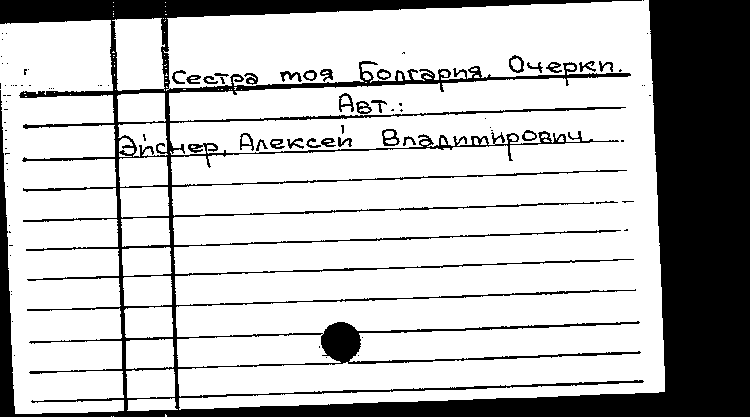 Сестра моя Болгария. Очерки.
Авт.:
Эйснер, Алексей Владимирович